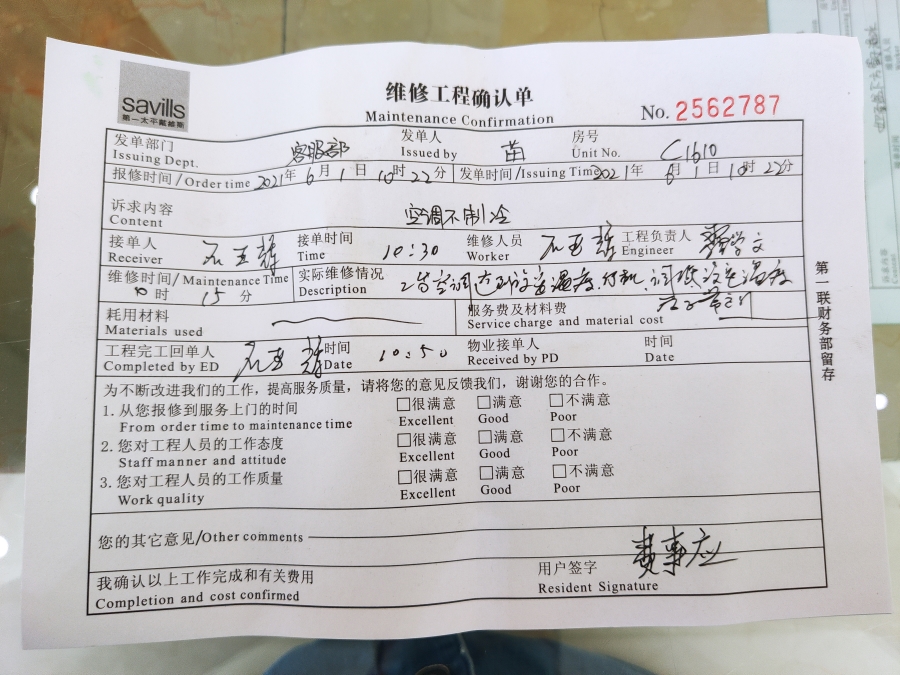 savills
第一太平戴维斯
维修工程确认单
Maintenance Confirmation
No. 2562787
发单部门 客服部 发单人 苗 房号 C1610
Issuing Dept. Issued by Unit No.
报修时间/Order time 2021年6月1日10时22分 发单时间/Issuing Time 2021年6月1日10时22分
诉求内容 空调不制冷
Content
接单人 石玉 接单时间 10:30 维修人员 石玉 工程负责人 学文
Receiver Time Worker Engineer
维修时间/Maintenance Time 实际维修情况 空调 温度 温度
时 15分 Description
耗用材料 服务费及材料费
Materials used Service charge and material cost
工程完工回单人 石玉 时间 10:50 物业接单人 时间
Completed by ED Date Received by PD Date
为不断改进我们的工作,提高服务质量,请将您的意见反馈我们,谢谢您的合作。
1. 从您报修到服务上门的时间 □很满意 □满意 □不满意
From order time to maintenance time Excellent Good Poor
2. 您对工程人员的工作态度 □很满意 □满意 □不满意
Staff manner and attitude Excellent Good Poor
3. 您对工程人员的工作质量 □很满意 □满意 □不满意
Work quality Excellent Good Poor
您的其它意见/Other comments
我确认以上工作完成和有关费用 用户签字
Completion and cost confirmed Resident Signature
第一联财务部留存